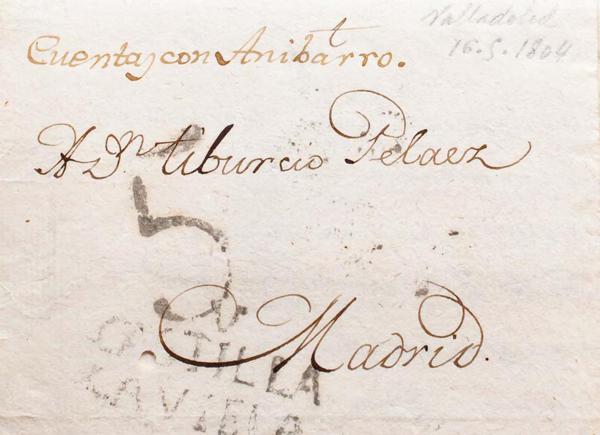 Valladolid
16.5.1804
Cuentas con Anibarro.
A Dn. Tiburcio Pelaez
5
Madrid.
CASTILLA
LAVIEJA